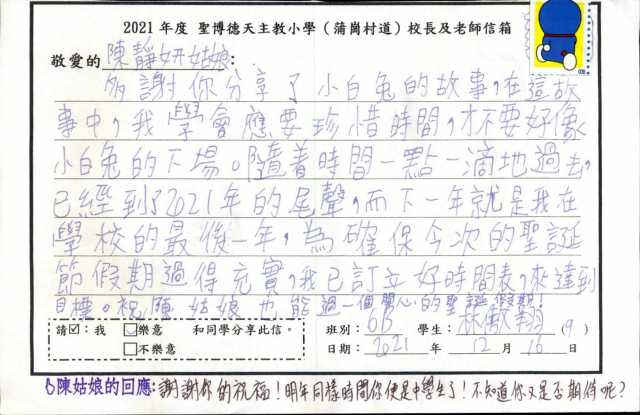 2021 年度 聖博德天主教小學（蒲崗村道）校長及老師信箱
敬愛的 陳靜妍姑娘：
多謝你分享了小白兔的故事，在這故
事中，我學會應要珍惜時間，才不要好像
小白兔的下場。隨着時間一點一滴地過去，
已經到了2021年的尾聲，而下一年就是我在
學校的最後一年，為確保今次的聖誕
節假期過得充實，我已訂立好時間表，來達到
目標。祝願姑娘也能過一個開心的聖誕假期！
請☑：我 □樂意 和同學分享此信。 班別：6B 學生：林傲翔 (9)
□不樂意 日期：2021 年 12 月 16 日
陳姑娘的回應：謝謝你的祝福！明年同樣時間你便是中學生了！不知道你又是否期待呢？